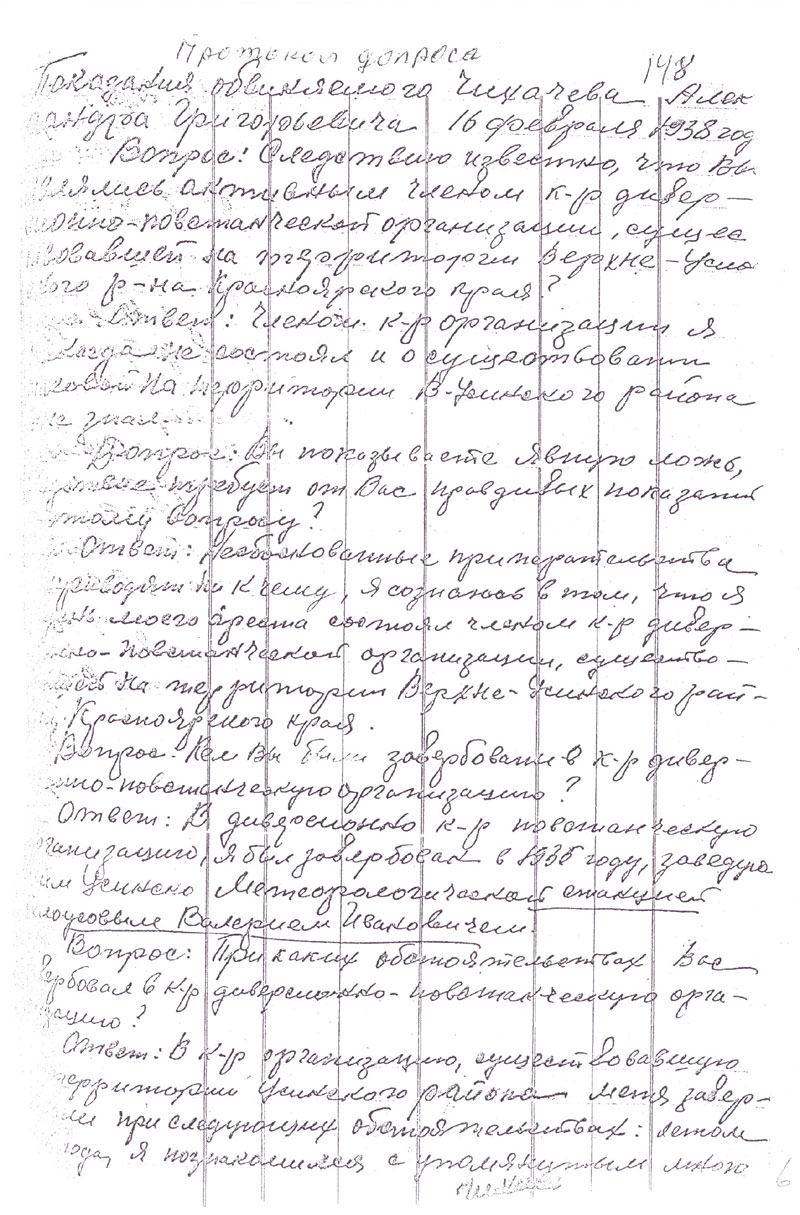 Протокол допроса
148
Показания обвиняемого Чихачева Алек
сандра Григорьевича 16 февраля 1938 год
Вопрос: Следствию известно, что Вы
являлись активным членом к-р дивер-
сионно-повстанческой организации, сущес
вовавшей на территории Верхне-Усин
кого р-на Красноярского края?
Ответ: Членом к-р организации я
когда не состоял и о существовании
ковой на территории В-Усинского района
не знал.
Вопрос: Вы показываете явную ложь,
дствие требует от Вас правдивых показаний
этому вопросу?
Ответ: Необоснованные
приводят ни к чему, я сознаюсь в том, что я
день моего ареста состоял членом к-р дивер-
нно-повстанческой организации, существо-
шей на территории Верхне-Усинского рай-
Красноярского края.
Вопрос: Кем Вы были завербованы в к-р дивер-
нно-повстанческую организацию?
Ответ: В диверсионно к-р повстанческую
рганизацию, я был завербован в 1935 году, заведую
им Усинско Метеорологической станцией
лоусовым Валерием Ивановичем.
Вопрос: При каких обстоятельствах Вас
вербовал в к-р диверсионно-повстанческую орга-
зацию?
Ответ: В к-р организацию, существовавшую
территории Усинского района меня завер-
ли при следующих обстоятельствах: летом
года, я познакомился с упомянутым мною
6